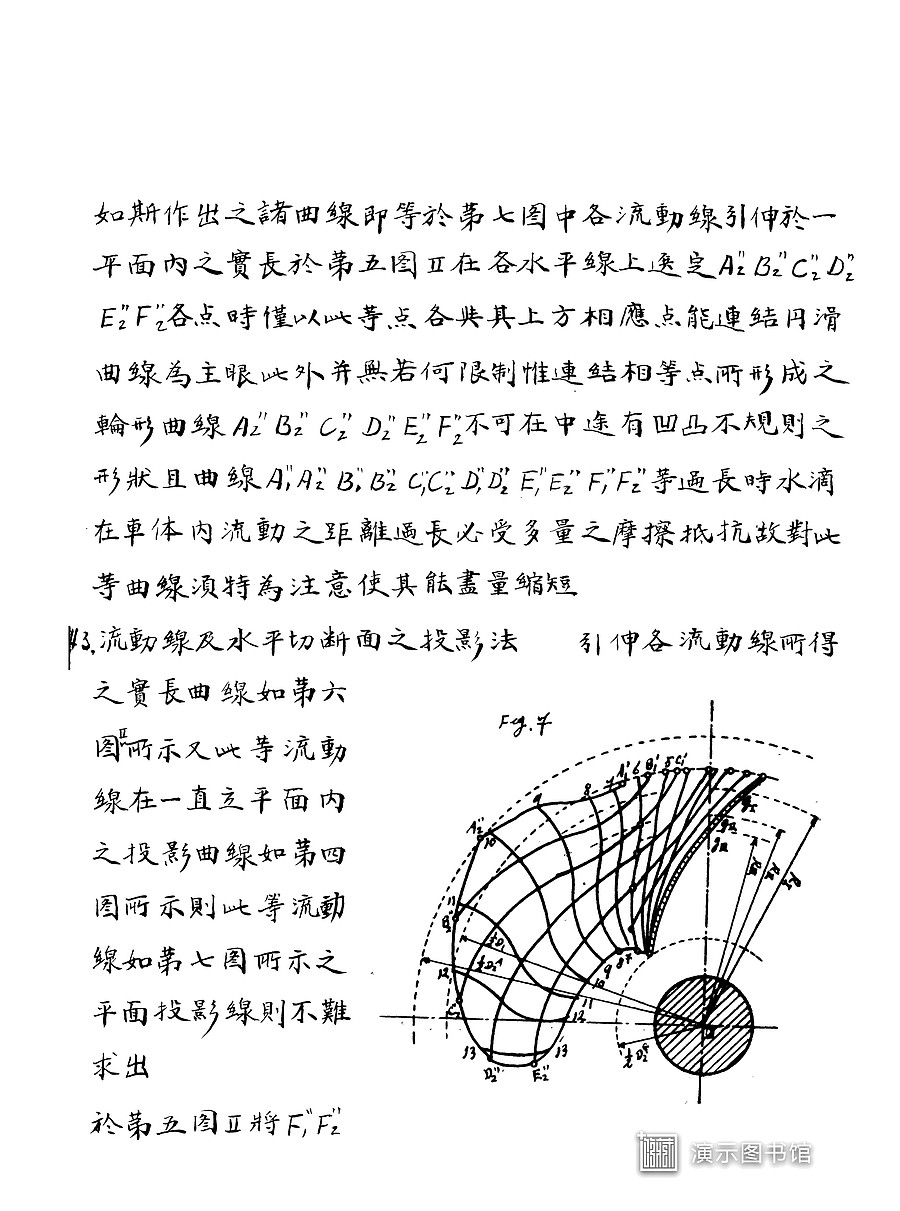 如斯作出之諸曲線即等於第七图中各流動線引伸於一
平面內之實長於第五图Ⅱ在各水平線上送定A₂″ B₂″ C₂″ D₂″
E₂″ F₂″各点時僅以此等点各與其上方相應点能連結円滑
曲線為主眼此外并無若何限制惟連結相等点所形成之
輪形曲線 A₂″ B₂″ C₂″ D₂″ E₂″ F₂″不可在中途有凹凸不規則之
形狀且曲線A₁″A₂″ B₁″B₂″ C₁″C₂″ D₁″D₂″ E₁″E₂″ F₁″F₂″等過長時水滴
在車体內流動之距離過長必受多量之摩擦抵抗故對此
等曲線須特為注意使其能盡量縮短
43.流動線及水平切断面之投影法 引伸各流動線所得
之實長曲線如第六
图Ⅱ所示又此等流動
線在一直立平面内
之投影曲線如第四
图所示則此等流動
線如第七图所示之
平面投影線則不難
求出
於第五图Ⅱ將F₁″F₂″
Fig.7
A₂″ 10 9 8 7 A₁′ 6 B₁′ 5 C₁′
B₂″ 11
12
13 D₂″ E₂″ 13
9 10 11 12
演示图书馆